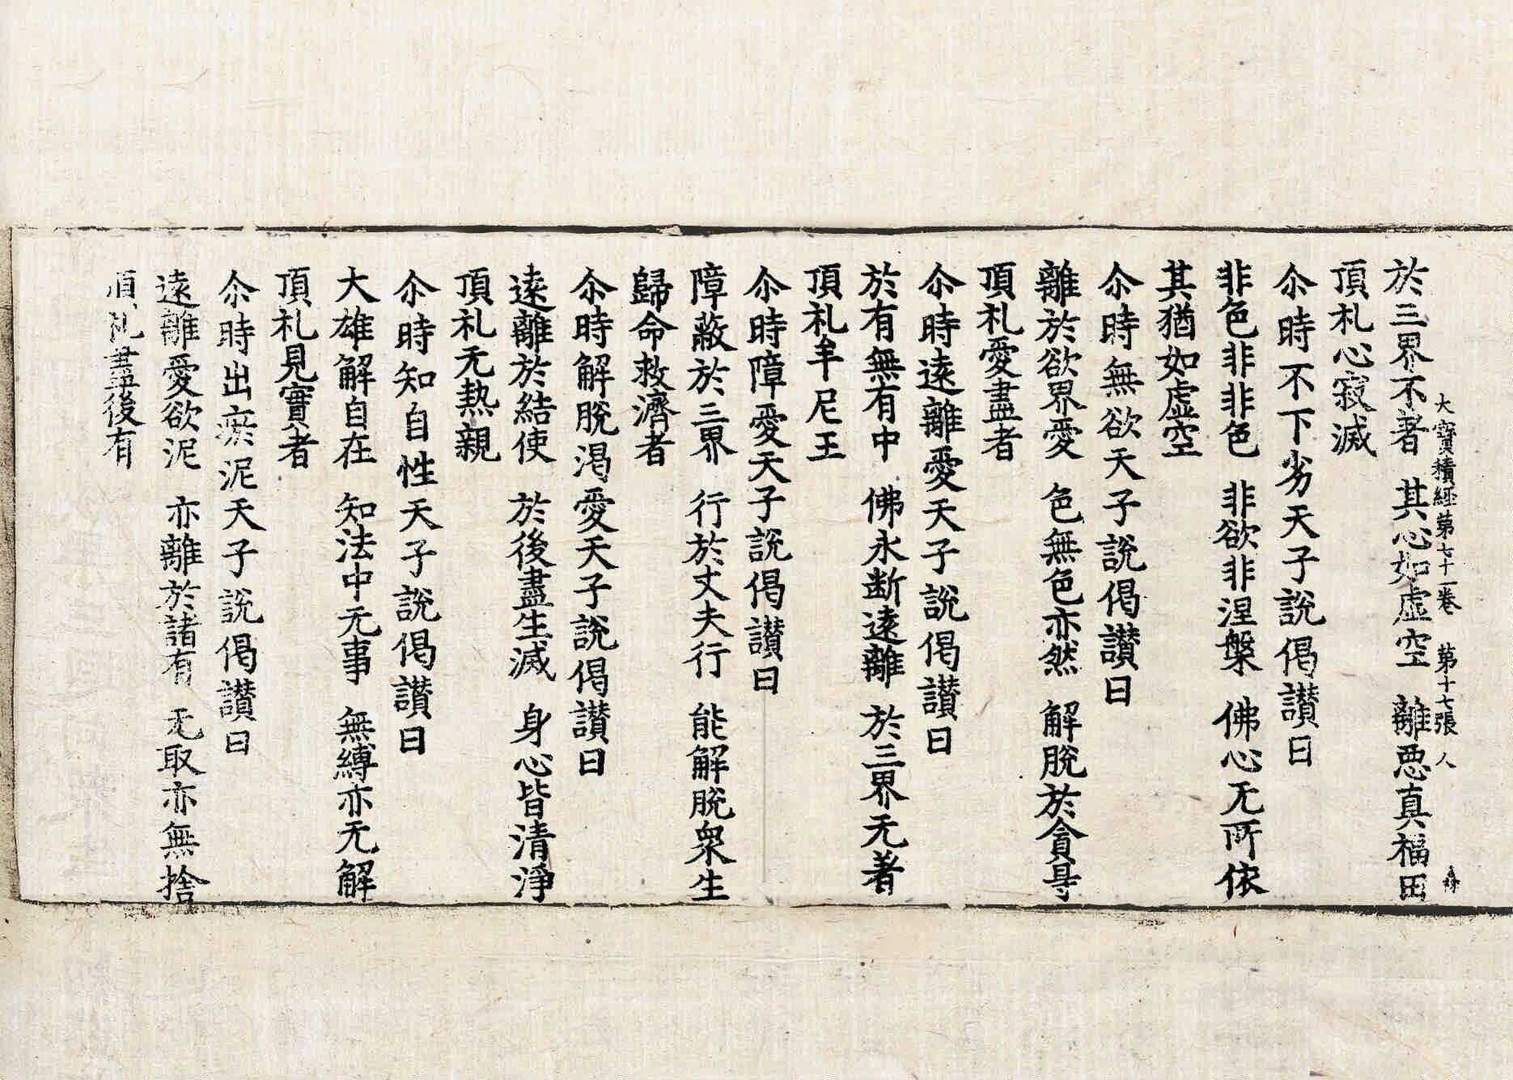 大寳積經第七十一卷　第十七張　人
於三界不著　其心如虛空　離惡真福田
頂礼心寂滅
尒時不下劣天子說偈讃曰
非色非非色　非欲非涅槃　佛心无所依
其猶如虛空
尒時無欲天子說偈讃曰
離於欲界愛　色無色亦然　解脫於貪㝵
頂礼愛盡者
尒時遠離愛天子說偈讃曰
於有無有中　佛永断遠離　於三界无著
頂礼牟尼王
尒時障愛天子說偈讃曰
障蔽於三界　行於丈夫行　能解脫衆生
歸命救濟者
尒時解脫渴愛天子說偈讃曰
遠離於結使　於後盡生滅　身心皆清淨
頂礼无熱親
尒時知自性天子說偈讃曰
大雄解自在　知法中无事　無縛亦无解
頂礼見實者
尒時出淤泥天子說偈讃曰
遠離愛欲泥　亦離於諸有　无取亦無捨
頂礼盡後有